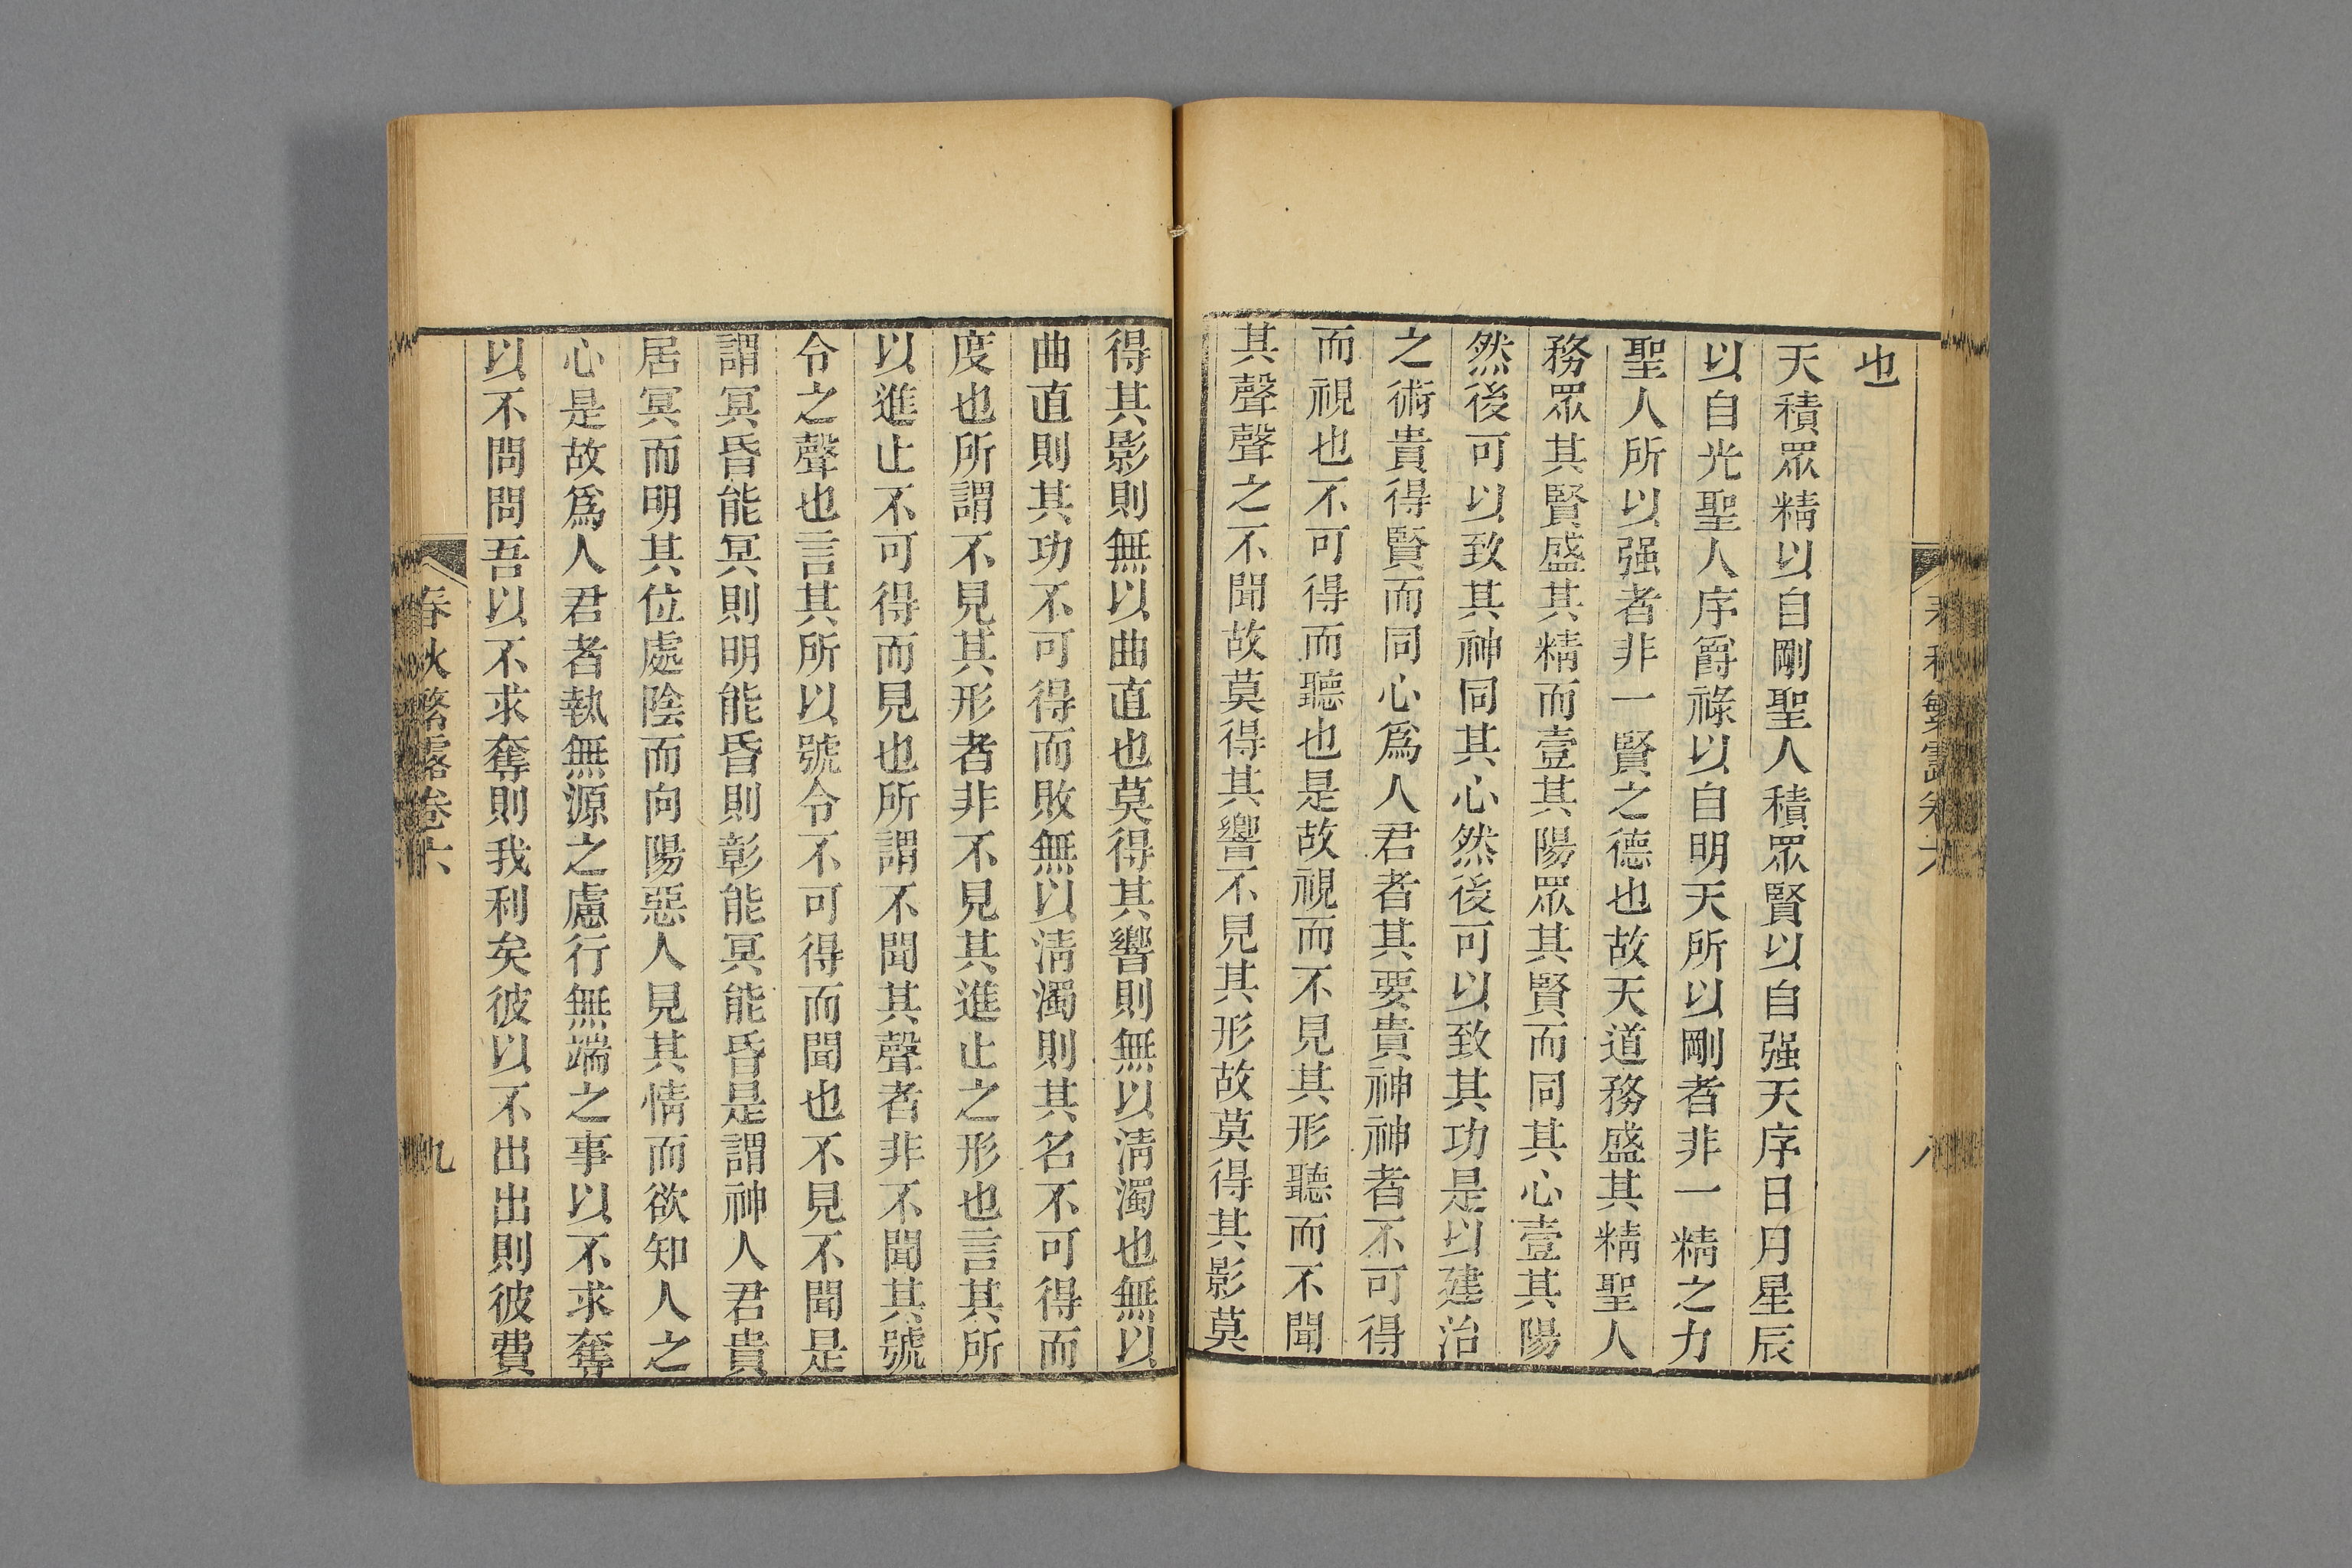 春秋繁露卷六
八
也
天積眾精以自剛聖人積眾賢以自强天序日月星辰
以自光聖人序爵祿以自明天所以剛者非一精之力
聖人所以强者非一賢之德也故天道務盛其精聖人
務眾其賢盛其精而壹其陽眾其賢而同其心壹其陽
然後可以致其神同其心然後可以致其功是以建治
之術貴得賢而同心爲人君者其要貴神神者不可得
而視也不可得而聽也是故視而不見其形聽而不聞
其聲聲之不聞故莫得其響不見其形故莫得其影莫
得其影則無以曲直也莫得其響則無以淸濁也無以
曲直則其功不可得而敗無以淸濁則其名不可得而
度也所謂不見其形者非不見其進止之形也言其所
以進止不可得而見也所謂不聞其聲者非不聞其號
令之聲也言其所以號令不可得而聞也不見不聞是
謂冥昏能冥則明能昏則彰能冥能昏是謂神人君貴
居冥而明其位處陰而向陽惡人見其情而欲知人之
心是故爲人君者執無源之慮行無端之事以不求奪
以不問問吾以不求奪則我利矣彼以不出出則彼費
春秋繁露卷六
九